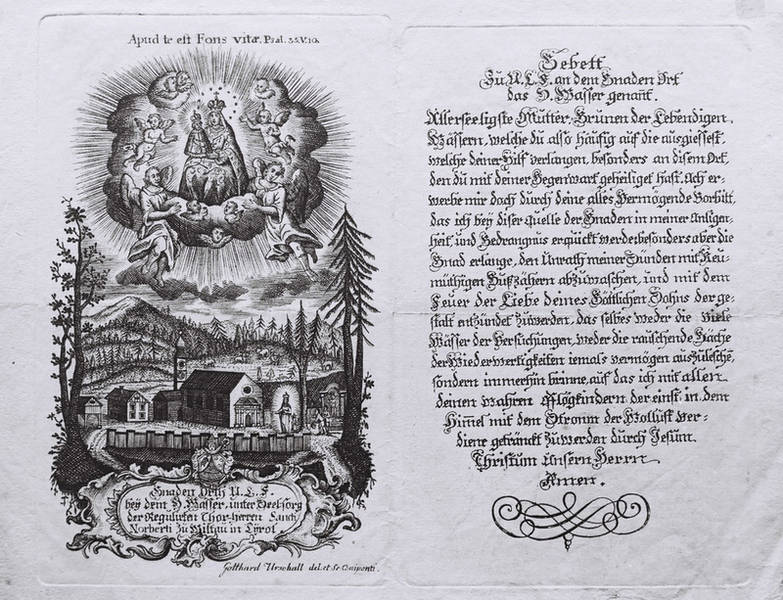 Apud te est Fons vitæ. Psal. 35.V.10.
Gnaden Orth U. L. F.
bey dem H. Wasser, unter Seelsorg
der Regulirten Chor-Herren Sancti
Norberti zu Wiltau in Tyrol.
Gotthard Urschall del. et Sc. Œniponti.
Gebett
Zu U. L. F. an dem Gnaden Ort
das H. Wasser genant̄.
Allerseeligste Mutter, Brunen der Lebendigen
Wässern, welche du also häufig auf die ausgiessest,
welche deiner Hilf verlangen, besonders an disem Ort,
den du mit deiner Gegenwart geheiliget hast. Ach er-
werbe mir doch durch deine alles Vermögende Vorbitt,
das ich bey diser quelle der Gnaden in meiner Anligen-
heit, und Bedrangnus erquickt werde, besonders aber die
Gnad erlange, den Unrath meiner Sünden mit Reu-
müthigen Buß zähern abzuwaschen, und mit dem
Feuer der Liebe deines Göttlichen Sohns der ge-
stalt entzündet zuwerden, das selbes weder die Viele
Wässer der Versuchungen, weder die rauschende Bäche
der Wiederwertigkeiten iemals vermögen auszulöschē,
sondern immerhin brinne, auf das ich mit allen
deinen wahren Pflegkindern der einst in dem
Him̄el mit dem Strom̄ der Wollust ver-
diene getränckt zuwerden durch Jesum
Christum Unsern Herrn
Amen.